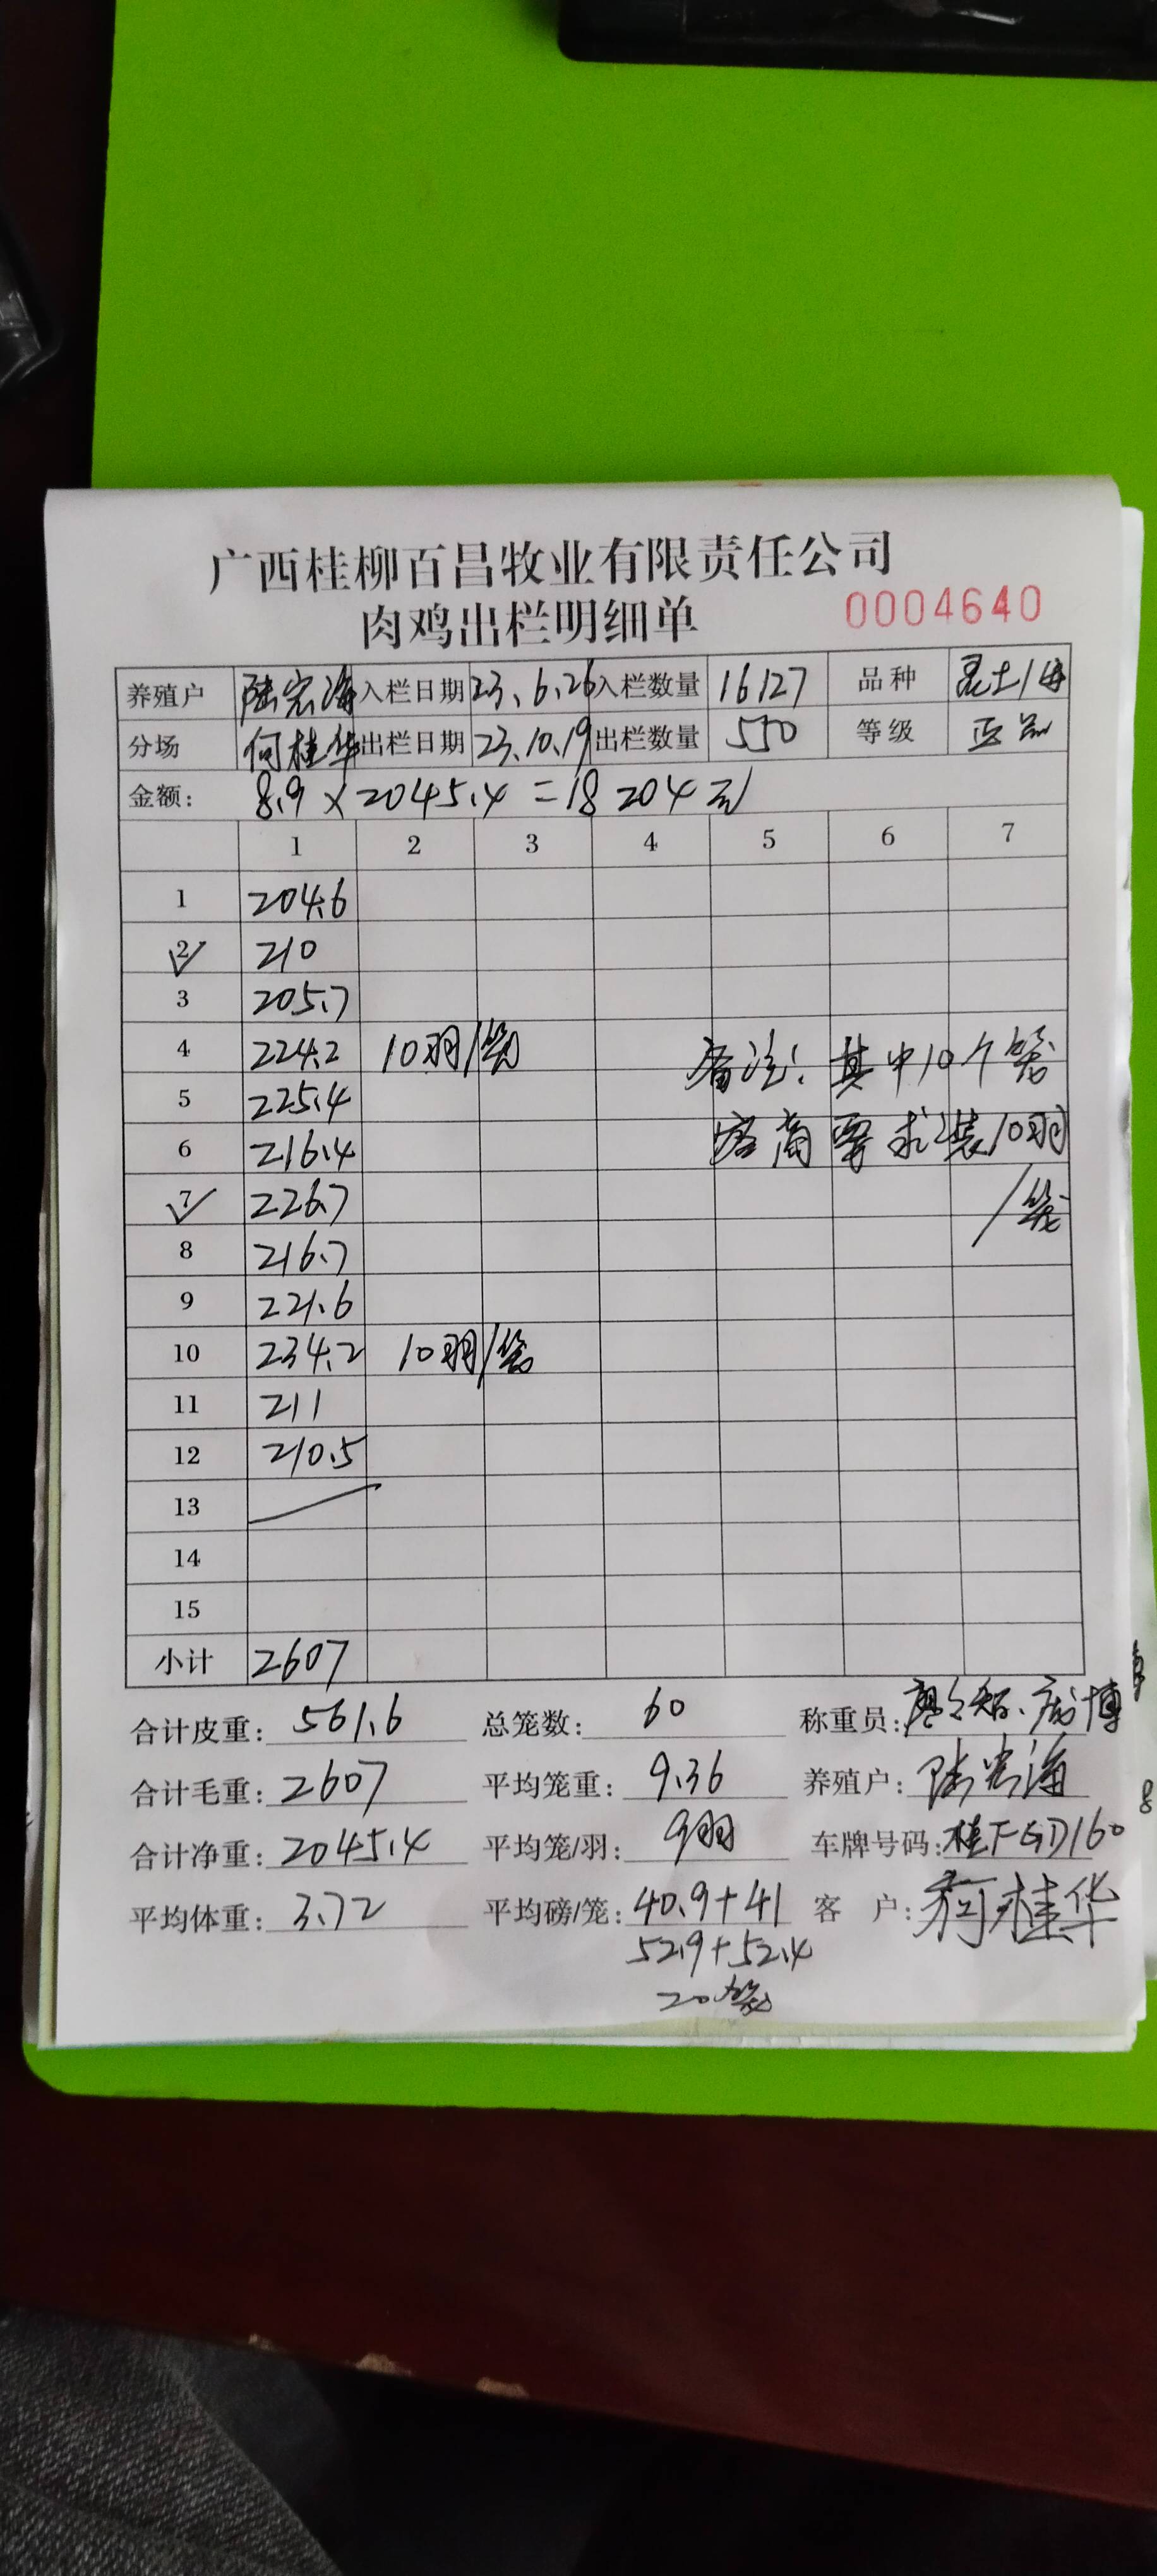 广西桂柳百昌牧业有限责任公司
肉鸡出栏明细单 0004640
养殖户 陆宏海 入栏日期 23.6.26 入栏数量 16127 品种
分场 何桂华 出栏日期 23.10.19 出栏数量 550 等级 正品
金额: 8.9×2045.4=18204元
1 2 3 4 5 6 7
1 204.6
2 210
3 205.7
4 224.2 10羽/笼 备注: 其中10个笼
5 225.4
6 216.4 客商要求装10羽
7 226.7 /笼
8 216.7
9 221.6
10 234.2 10羽/笼
11 211
12 210.5
13
14
15
小计 2607
合计皮重: 561.6 总笼数: 60 称重员:
合计毛重: 2607 平均笼重: 9.36 养殖户: 陆宏海
合计净重: 2045.4 平均笼/羽: 9羽 车牌号码: 桂FGD160
平均体重: 3.72 平均磅/笼: 40.9+41 客 户: 何桂华
52.9+52.4
20笼
8